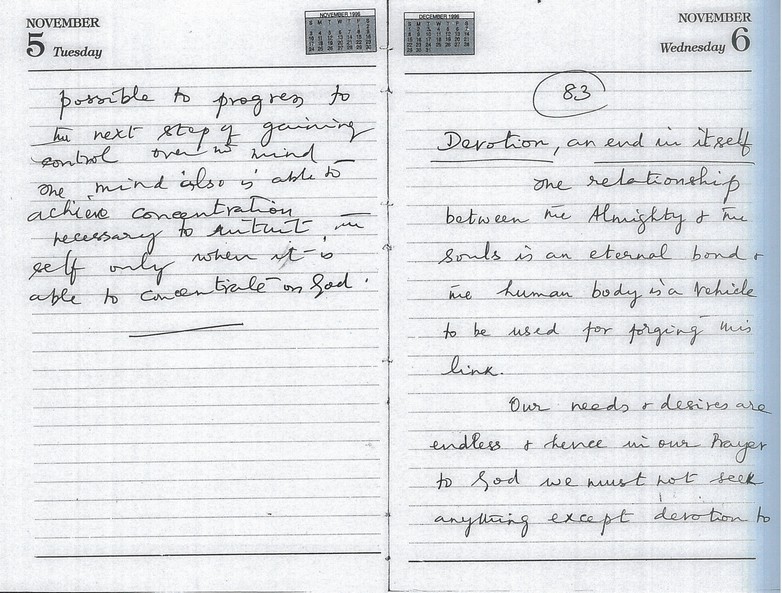 NOVEMBER
5 Tuesday
NOVEMBER 1996
possible to progress to
the next step of gaining
control over the mind
The mind also is able to
achieve concentration
necessary to intuit the
self only when it is
able to concentrate on God.
DECEMBER 1996
NOVEMBER
Wednesday 6
83
Devotion, an end in itself
The relationship
between the Almighty & the
souls is an eternal bond &
the human body is a vehicle
to be used for forging this
link.
Our needs & desires are
endless & hence in our Prayer
to God we must not seek
anything except devotion to